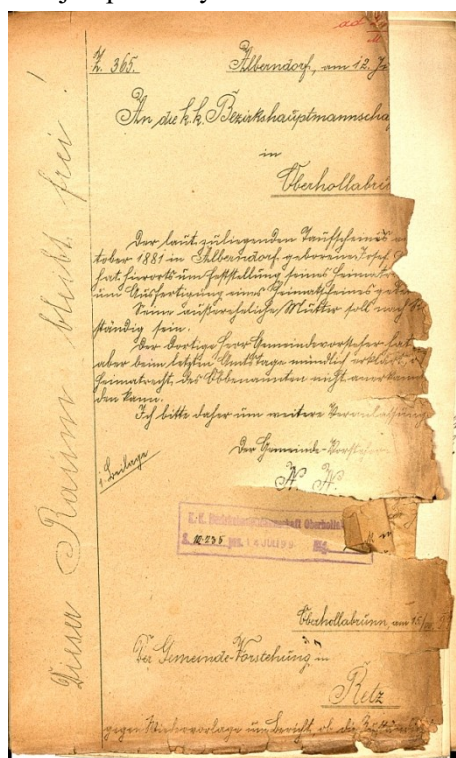 ad
Z. 365. Alberndorf, am 12. Ju
An die k. k. Bezirkshauptmannschaf
in
Oberhollabru
Der laut zuliegenden Taufscheines
tober 1881 in Alberndorf geborene Josef
hat hierorts um Feststellung seines Heimat
um Ausfertigung eines Heimatscheines gebet
Seine außereheliche Mutter soll nach
ständig sein.
Der dortige Herr Gemeindevorsteher hat
aber beim letzten Amtstage mündlich erklärt, d
Heimatrecht des Obbenannten nicht anerkann
den kann.
Ich bitte daher um weitere Veranlassung
Der Gemeinde-Vorsteher
N. N.
1. Beilage
Dieser Raum bleibt frei!
K. k. Bezirkshauptmannschaft Oberholla
14 JULI 9
Oberhollabrunn, am 15/
Der Gemeinde-Vorstehung in
Retz
gegen Wiedervorlage um Bericht, ob die